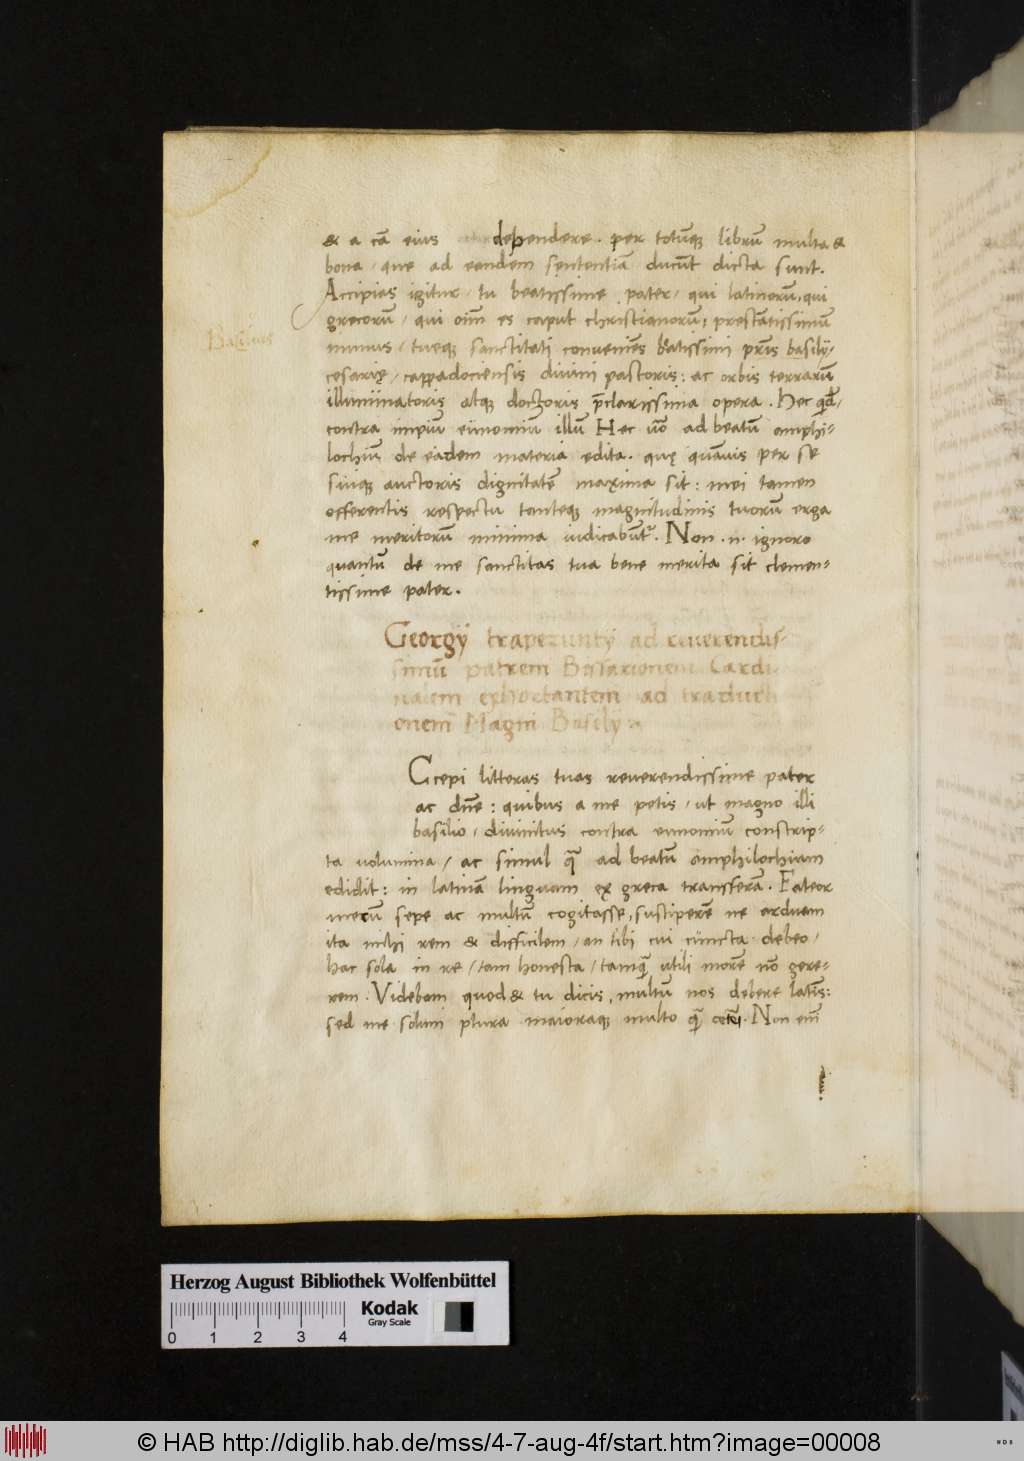 & a cā eius dependere. per totūq librū multa &
bona, que ad eandem sententiā ducūt dicta sunt.
Accipias igitur, tu beatissime pater, qui latinorū, qui
grecorū, qui oīm es caput christianorū, prestātissimū
munus, tueq sanctitati conveniēs bātissimi prīs basilÿ,
cesarię, cappadociensis divini pastoris: ac orbis terrarū
illuminatoris atq doctoris p̄clarissima opera. Hec qdē,
contra impiū eunomiū illū Hec v̄o ad beatū amphi-
lochiū de eadem materia edita. quę quāvis per se
suiq auctoris dignitatē maxima sit: mei tamen
offerentis respectu tanteq magnitudinis tuorū erga
me meritorū minima iudicabūt. Non .n. ignoro
quantū de me sanctitas tua bene merita sit clemen-
tissime pater.
Basilius
Georgÿ trapezuntÿ ad reverendis-
simū patrem Bessarionem Cardi
nalem exhortantem ad traducti
onem Magni Basilÿ
Ccepi litteras tuas reverendissime pater
ac dn̄e: quibus a me petis, ut magno illi
basilio, divinitus contra eunomiū conscrip-
ta volumina, ac simul q̄ ad beatū amphilochium
edidit: in latinā linguam ex greca transferā. Fateor
mecū sepe ac multū cogitasse, susciperē ne arduam
ita mihi rem & difficilem, an tibi cui cūncta debeo,
hac sola in re, tam honesta, tamq̄ utili morē nō gere-
rem. Videbam quod & tu dicis, multū nos debere latīs:
sed me solum plura maioraq multo q̄ ceteri. Non eīm
Herzog August Bibliothek Wolfenbüttel
Kodak
Gray Scale
0 1 2 3 4
© HAB http://diglib.hab.de/mss/4-7-aug-4f/start.htm?image=00008